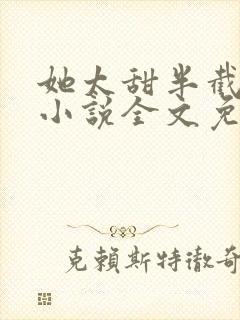 她太甜半截
小说全文免
克賴斯特徹奇